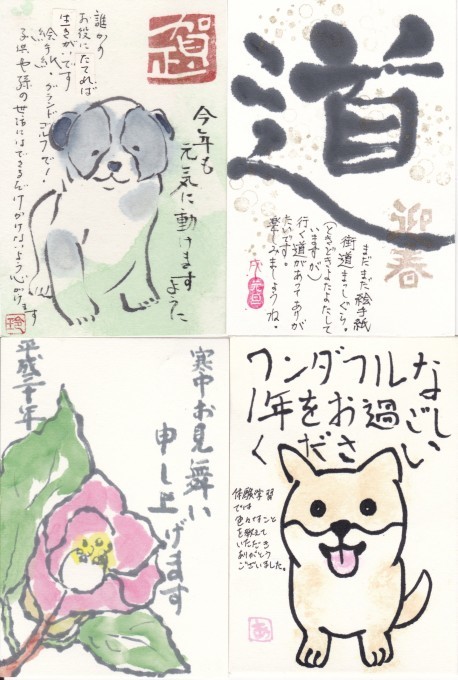 賀正
今年も
元気に動けます
ように
誰かの
お役にたてれば
生きがいです
絵手紙・グランドゴルフで!・
子供や孫の世話にはできるだけかけないよう心がけます
玲
道
迎春
まだまだ絵手紙
街道まっしぐら。
(ときどきよたよたして
いますが)
行く道があってありが
たいです。
楽しみましょうね。
寒中お見舞い
申し上げます
平成三十年
ワンダフルな
1年をお過ごし
ください
体験学習
では
色んなこと
を教えて
いただき
ありがとう
ございました。
あ